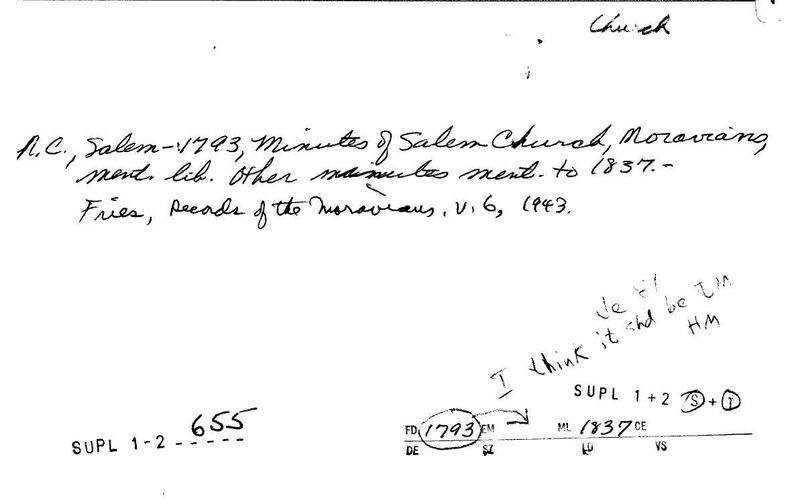 Church
N.C., Salem-1793, Minutes of Salem Church, Moravians,
ment. lib. Other minutes ment. to 1837.-
Fries, Records of the Moravians, V. 6, 1943.
I think it shd be IM
HM
SUPL 1+2 S + I
SUPL 1-2 655
FD 1793 EM ML 1837 CE
DE SZ LD VS